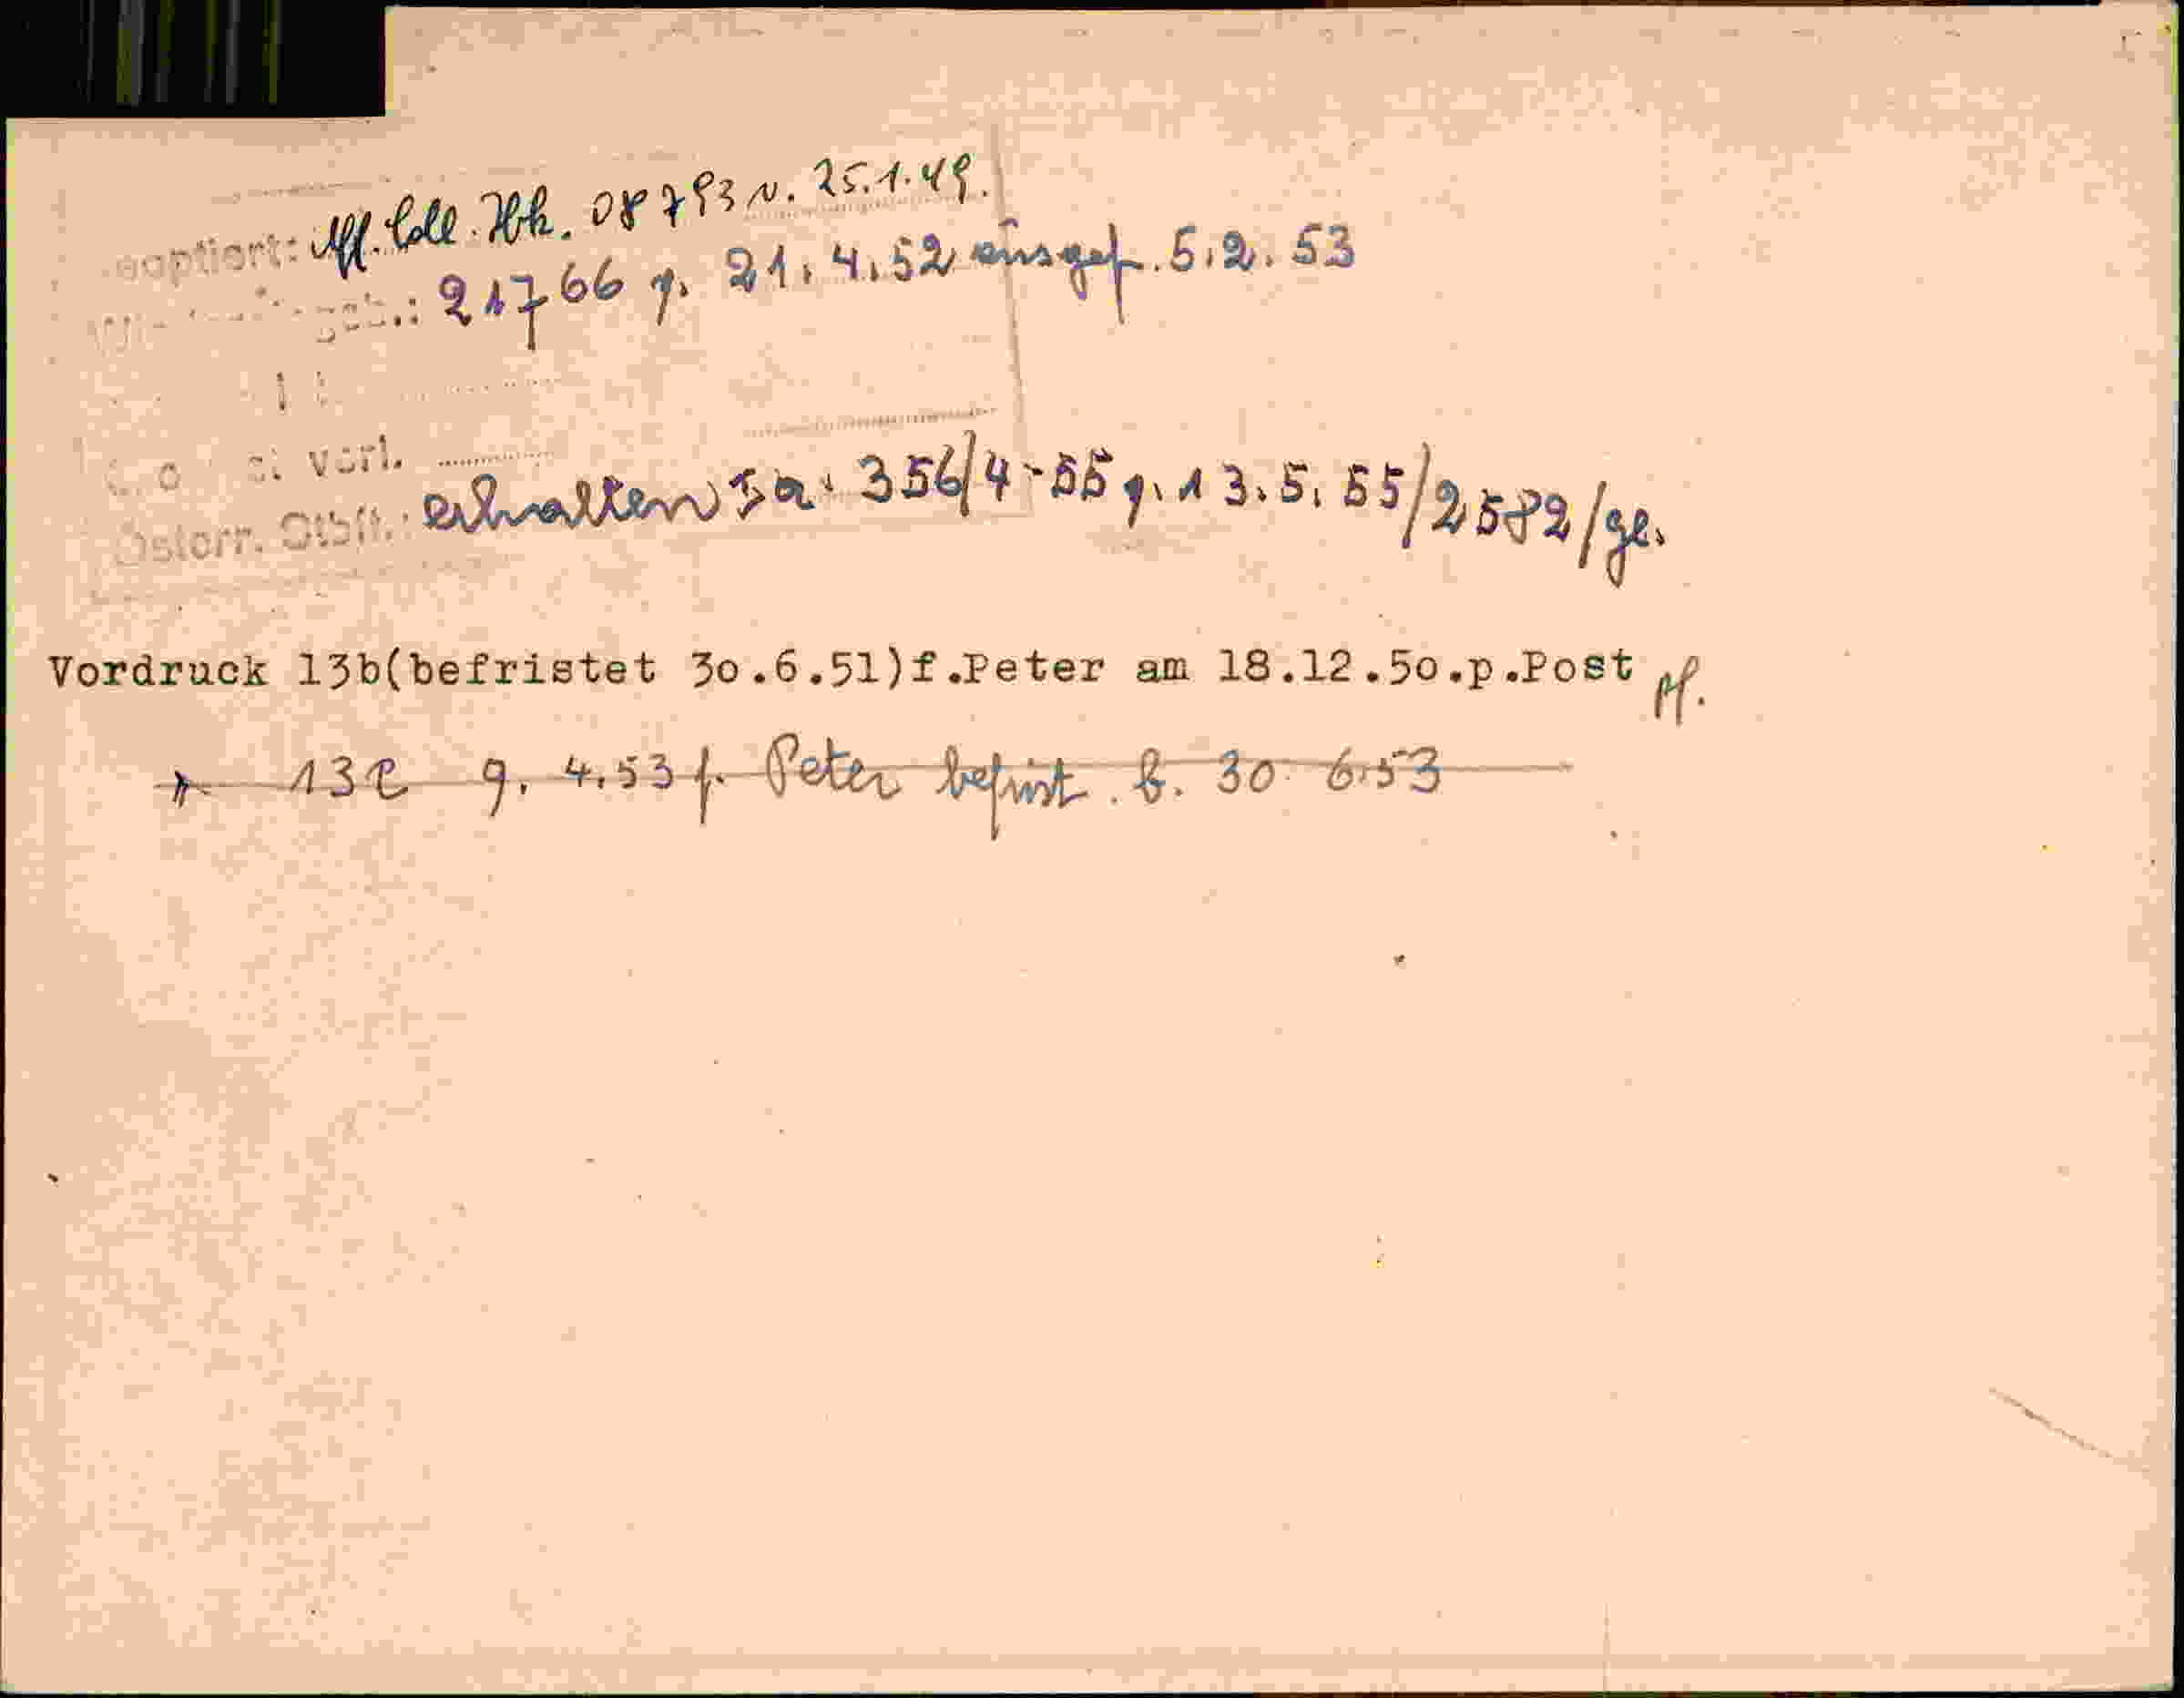 08793 v. 25.1.49.
21766 v. 21.4.52 ausgef. 5.2.53
verl.
Österr. Stbft.: erhalten 356/4-55 v. 13.5.55/2582/ge.
Vordruck 13b(befristet 3o.6.51)f.Peter am 18.12.5o.p.Post
13e 9.4.53 f. Peter befrist. b. 30 6.53